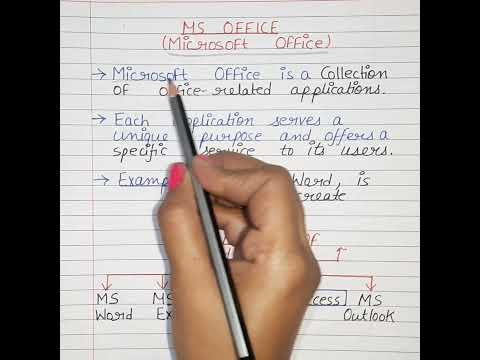 MS OFFICE
(Microsoft Office)
→ Microsoft Office is a Collection
OF office-related applications.
→ Each application serves a
unique purpose and offers a
specific service to its users.
→ Word, is
create
OF
MS MS
Word Outlook